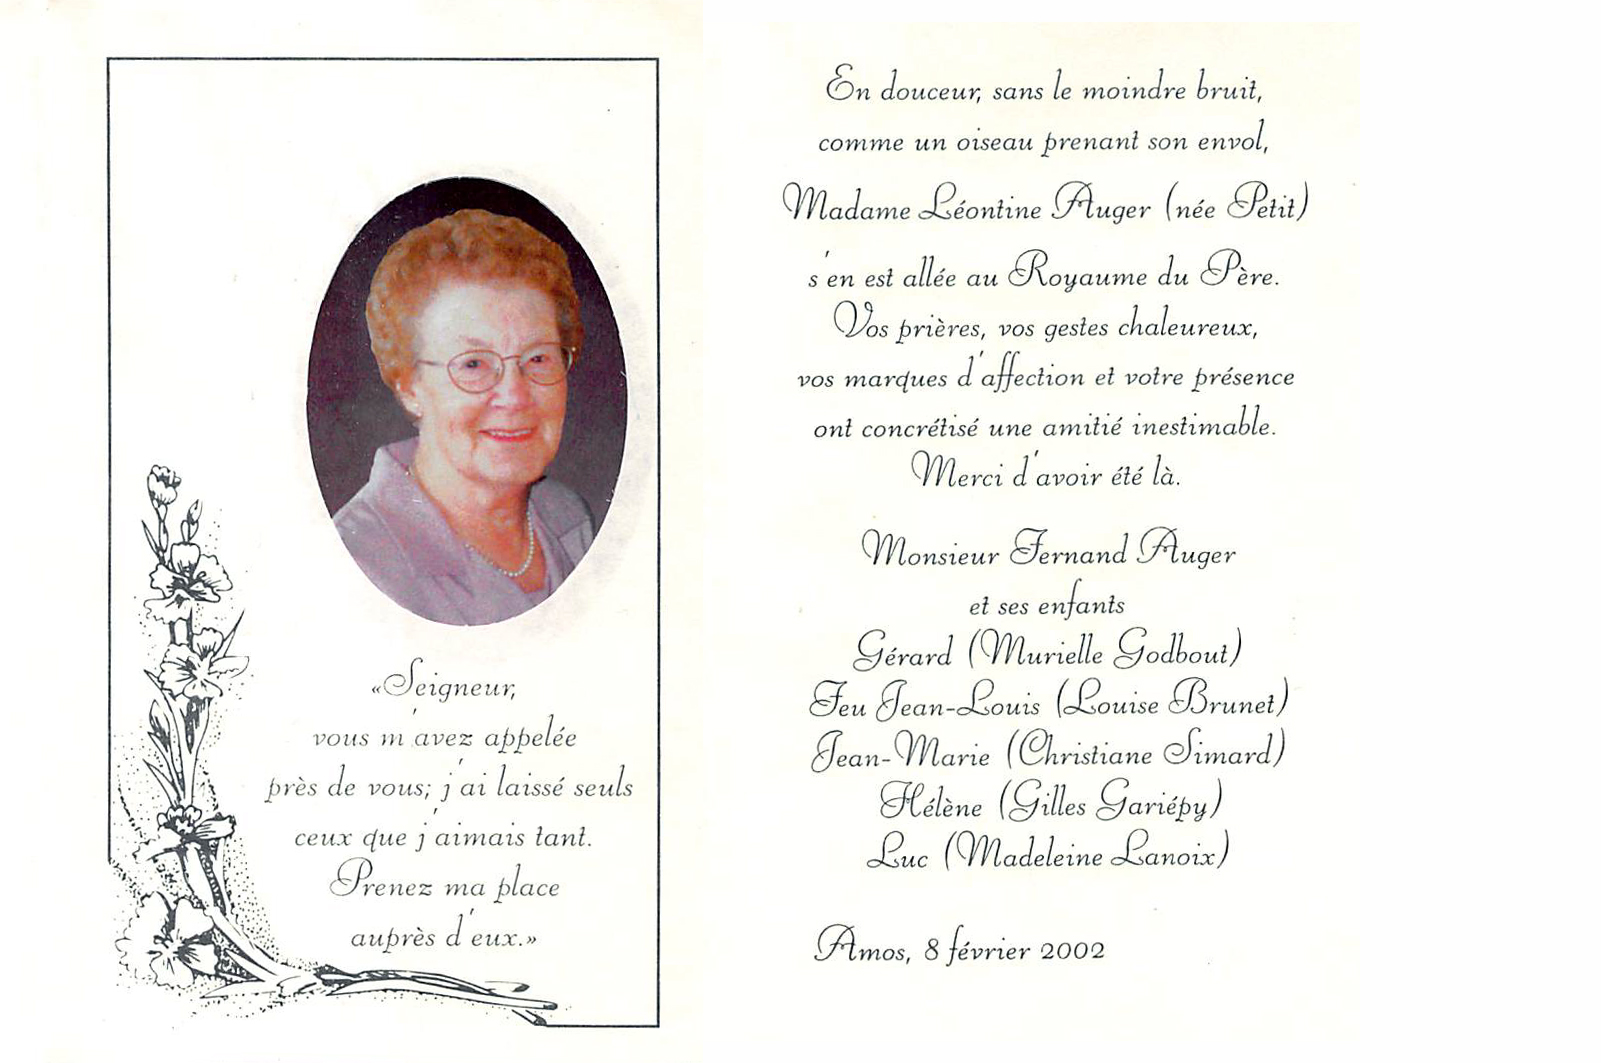 «Seigneur,
vous m'avez appelée
près de vous; j'ai laissé seuls
ceux que j'aimais tant.
Prenez ma place
auprès d'eux.»
En douceur, sans le moindre bruit,
comme un oiseau prenant son envol,
Madame Léontine Auger (née Petit)
s'en est allée au Royaume du Père.
Vos prières, vos gestes chaleureux,
vos marques d'affection et votre présence
ont concrétisé une amitié inestimable.
Merci d'avoir été là.
Monsieur Fernand Auger
et ses enfants
Gérard (Murielle Godbout)
Feu Jean-Louis (Louise Brunet)
Jean-Marie (Christiane Simard)
Hélène (Gilles Gariépy)
Luc (Madeleine Lanoix)
Amos, 8 février 2002